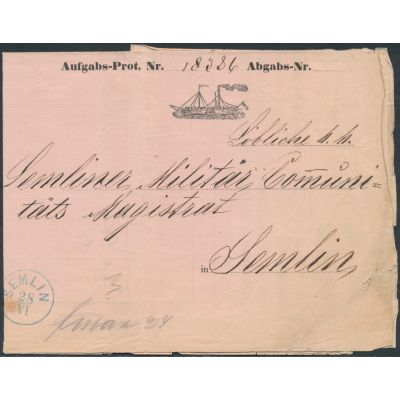 Aufgabs-Prot. Nr. 18326 Abgabs-Nr.
Löbliche k. k.
Semliner Militär Com̄uni-
täts Magistrat
in Semlin
SEMLIN
28
VI